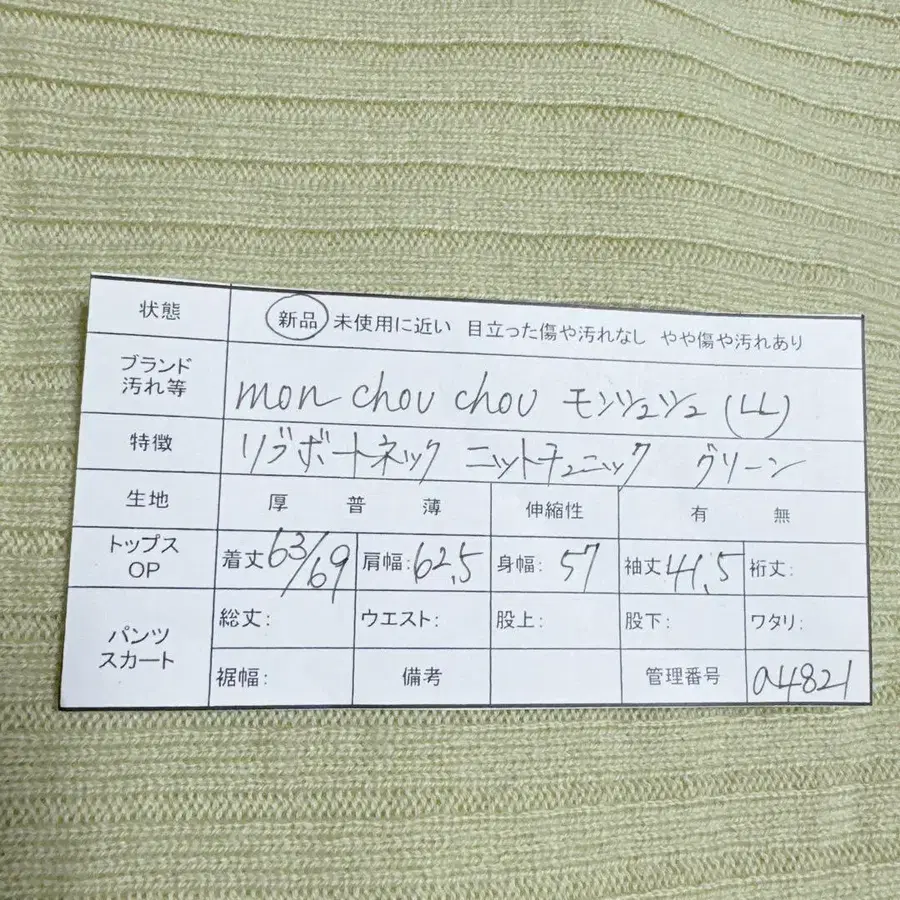 状態 新品 未使用に近い 目立った傷や汚れなし やや傷や汚れあり
ブランド
汚れ等 mon chou chou モンシュシュ (LL)
特徴 リブボートネック ニットチュニック グリーン
生地 厚 普 薄 伸縮性 有 無
トップス
OP 着丈 63/69 肩幅: 62.5 身幅: 57 袖丈 41.5 裄丈:
パンツ
スカート 総丈: ウエスト: 股上: 股下: ワタリ:
裾幅: 備考 管理番号 a4821